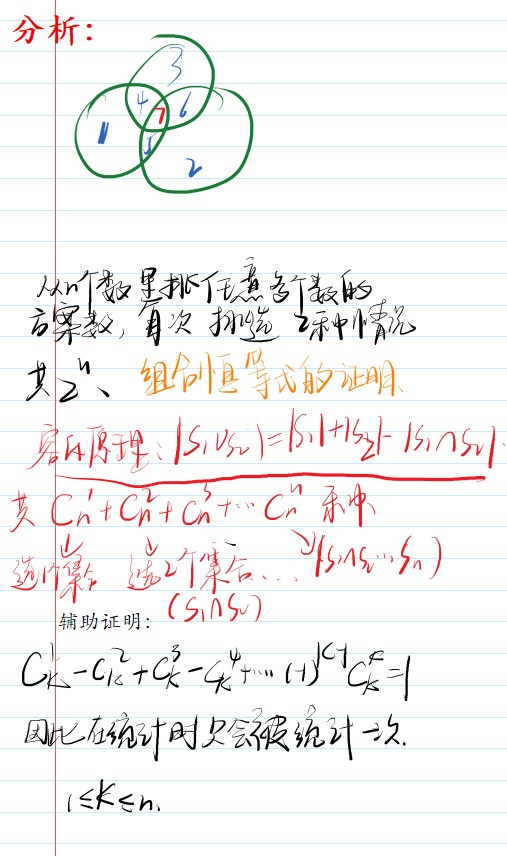 分析：
3
4 7 6
1 5
2
从n个数里挑任意多个数的
方案数，每次挑选 2种情况
共2^n、组合恒等式的证明.
容斥原理：|S₁∪S₂|=|S₁|+|S₂|-|S₁∩S₂|.
共 C_n^1+C_n^2+C_n^3+…C_n^n 种
选1个集合 选2个集合… |(S₁∩S₂…S_n)
(S₁∩S₂)
辅助证明：
C_k^1-C_k^2+C_k^3-C_k^4+…(-1)^{k-1}C_k^k=1
因此在统计时只会被统计一次.
1≤K≤n.